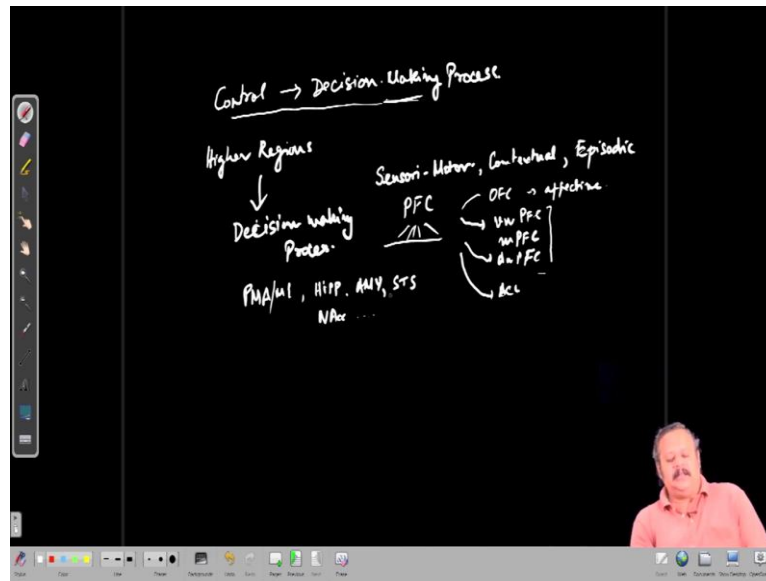 Control → Decision-Making Process
Higher Regions
Decision making
Proces.
PMA/M1, Hipp. AMY, STS
NAcc ...
Sensori-Motor, Contextual, Episodic
PFC
OFC → affective.
vm PFC
mPFC
dmPFC
ACC